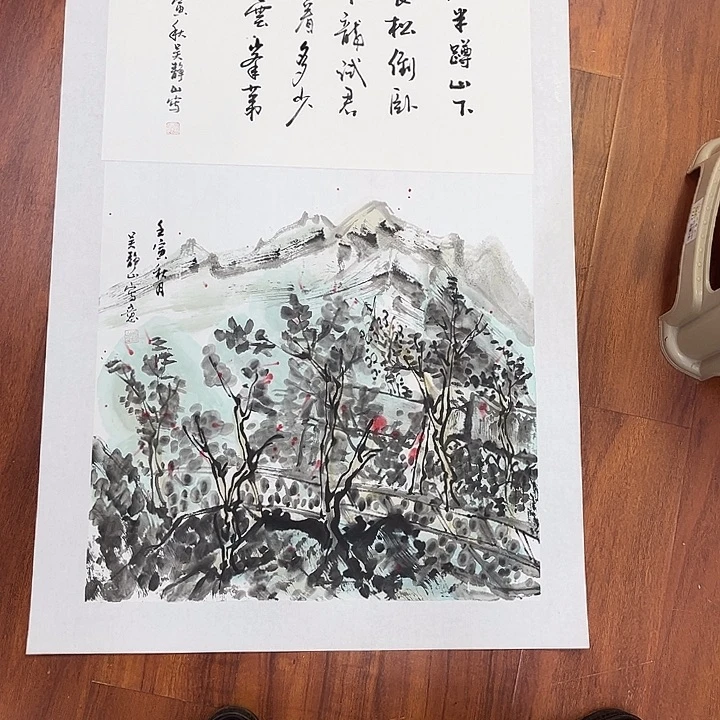 半蹲山下
松倒卧
龍試君
看多少
雲峯第
寅秋吴静山写
壬寅秋月
吴静山写意